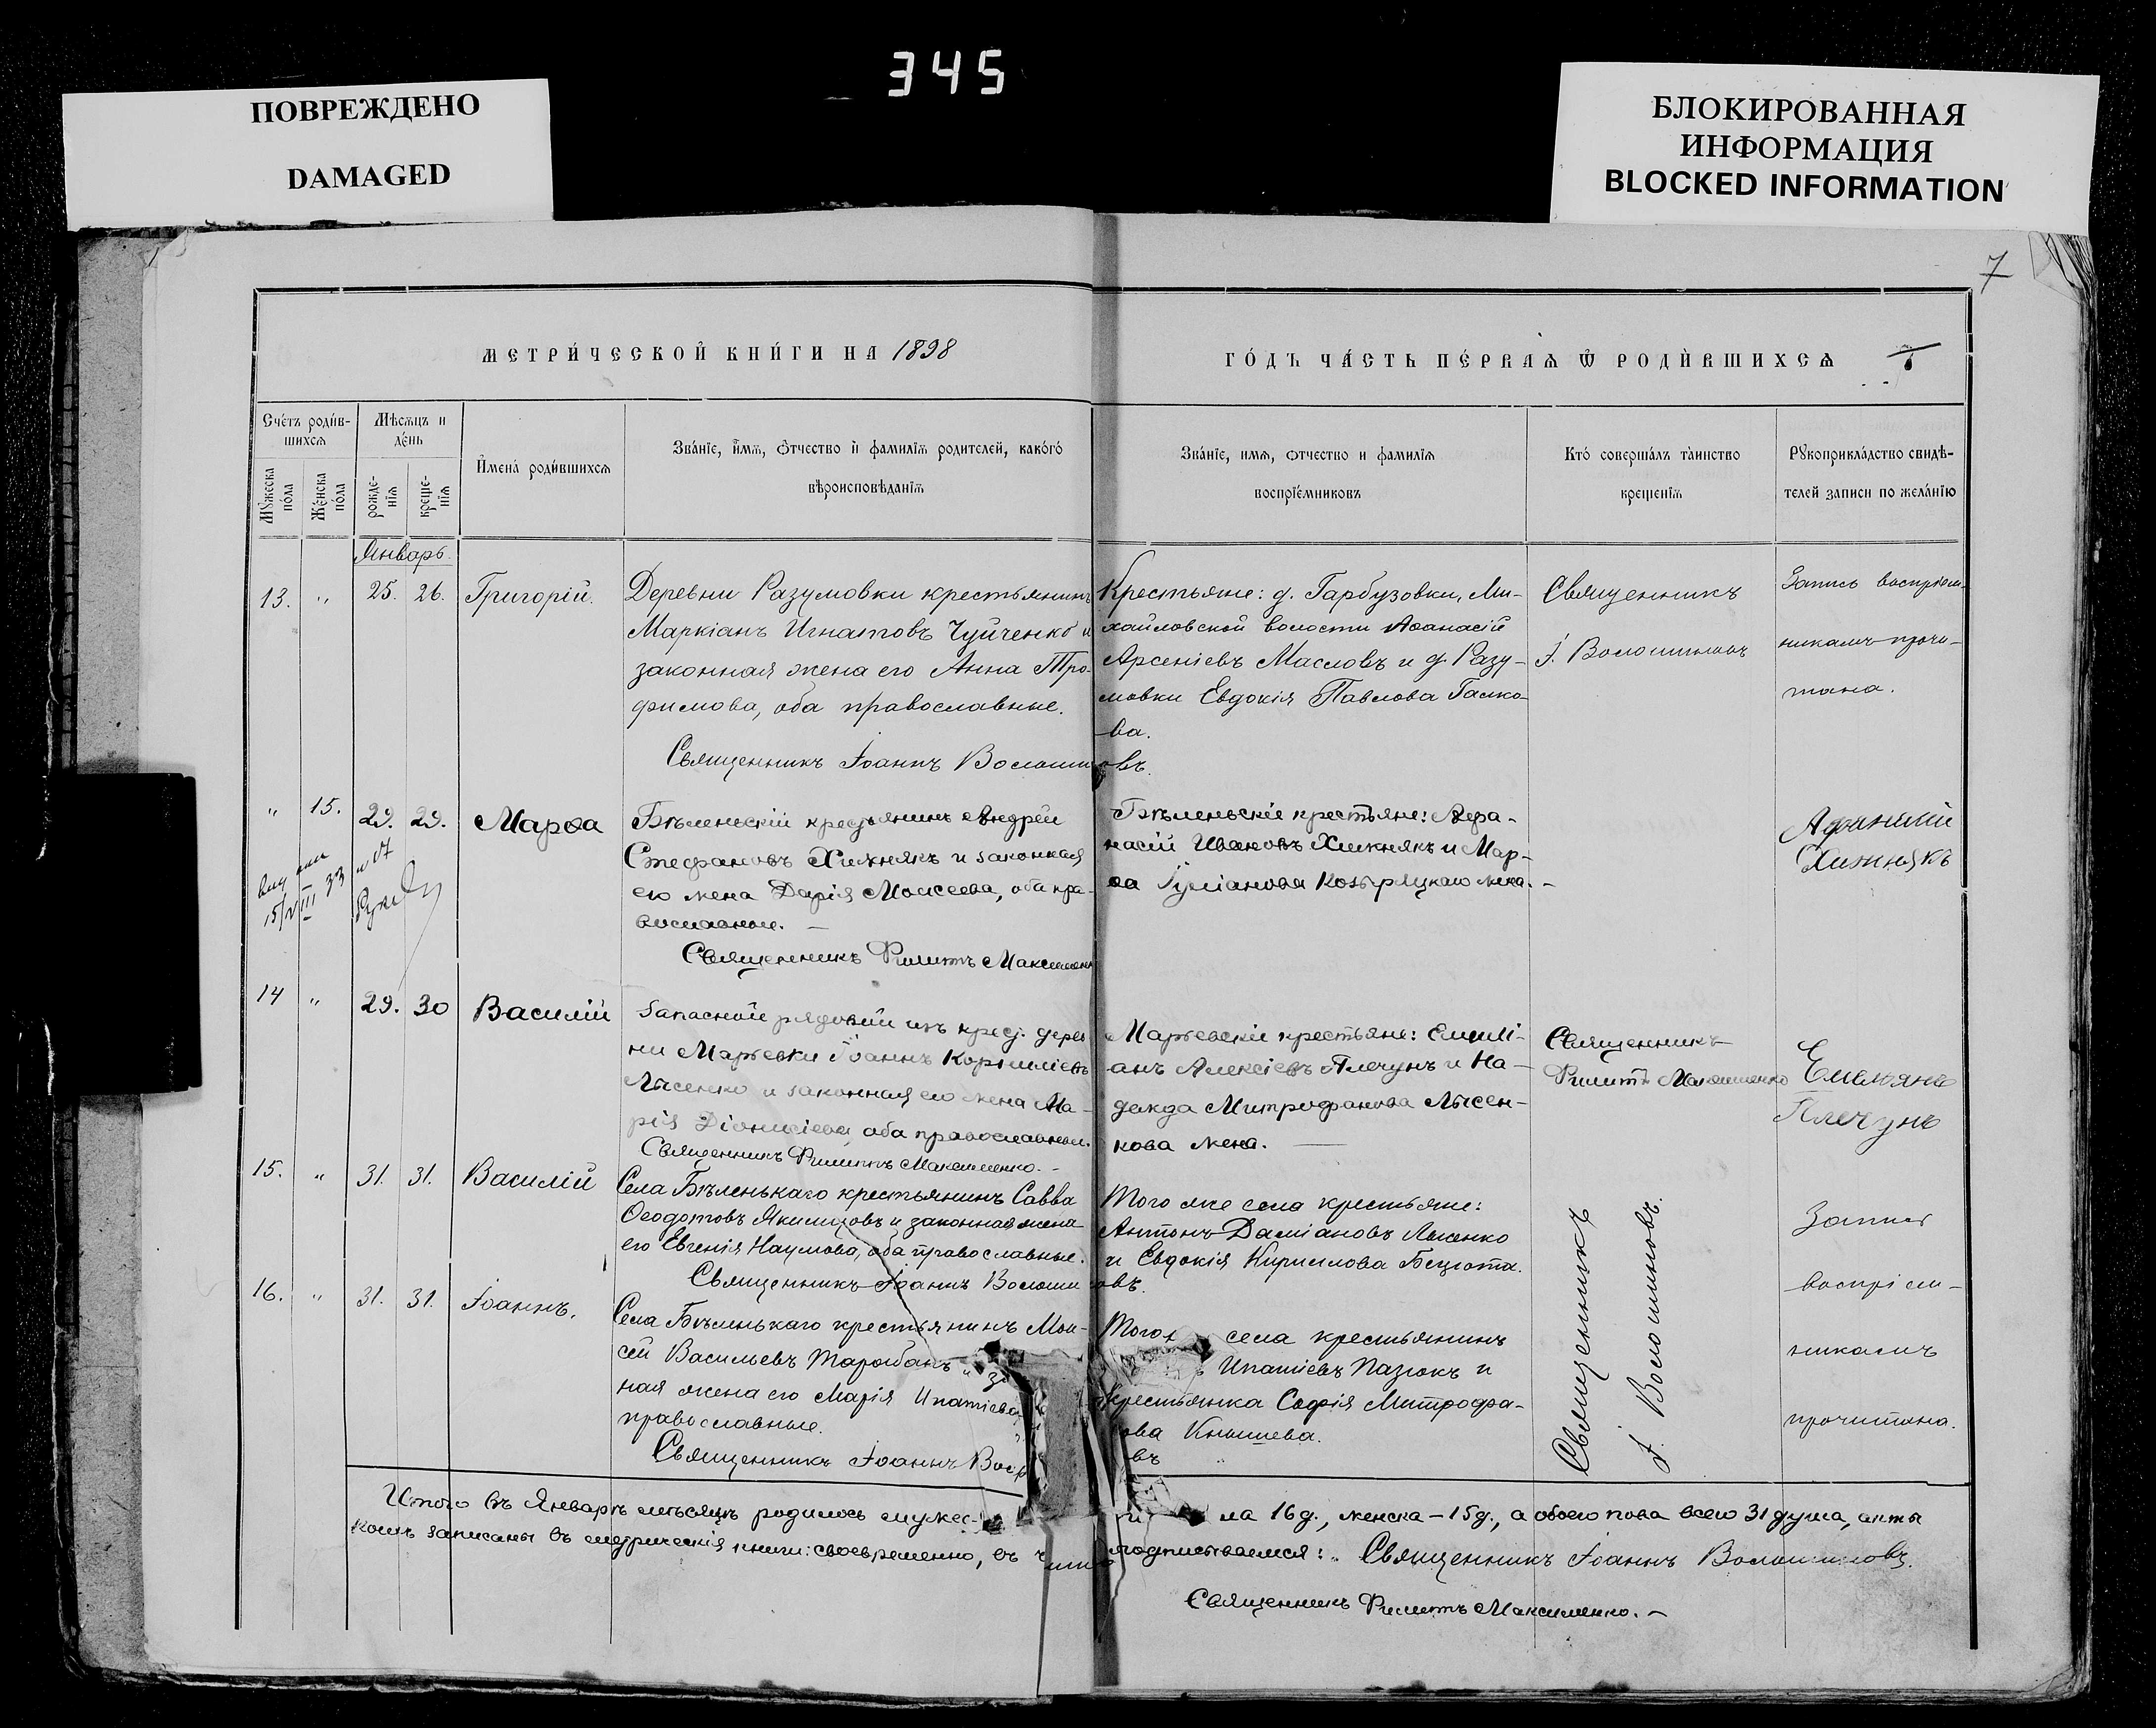 345
ПОВРЕЖДЕНО
DAMAGED
БЛОКИРОВАННАЯ
ИНФОРМАЦИЯ
BLOCKED INFORMATION
7
МЕТРИ́ЧЕСКОЙ КНИ́ГИ НА 1898
ГО́ДЪ ЧА́СТЬ ПЕ́РВАѦ Ѽ РОДИ́ВШИХСѦ
Сче́тъ роди́в-
шихсѧ
Мѣсѧцъ и
де́нь
Мꙋжеска
по́ла
Же́нска
по́ла
рожде-
нїѧ
креще-
нїѧ
И҆мена̀ роди́вшихсѧ
Зва́нїе, и҆́мѧ, ѻ҆́тчество и҆ фамилїѧ родителей, како́гѡ
вѣроисповѣданїѧ
Зва́нїе, имѧ, ѻтчество и фамилїѧ
воспрїе́мниковъ
Кто́ соверша́лъ та̀инство
креще́нїѧ
Рꙋкоприкла́дство свидѣ-
телей записи по жела́нїю
Январь.
13. " 25. 26. Григорій.
Деревни Разумовки крестьянинъ
Маркіанъ Игнатовъ Чуйченко и
законная жена его Анна Тро-
фимова, оба православные.
Священникъ Іоаннъ Волоши
Крестьяне: д. Гарбузовки, Ми-
хайловской волости Аѳанасій
Арсеніевъ Масловъ и д. Разу-
мовки Евдокія Павлова Галко-
ва.
овъ.
Священникъ
І. Волошиновъ
Запись воспріем-
никамъ прочи-
тана.
" 15. 29. 29. Марѳа
15/VIII 33
Бѣленьскій крестьянинъ Андрей
Стефановъ Хижнякъ и законная
его жена Дарія Моисеева, оба пра-
вославные. —
Священникъ Филиппъ Максименк
Бѣленьскіе крестьяне: Аѳа-
насій Ивановъ Хижнякъ и Мар-
ѳа Іуліанова Козыряцкаго жена. -
Афанасий
Хижнякъ
14 " 29. 30 Василій
Запасной рядовой изъ крест. дерев
ни Марьевки Іоаннъ Корниліевъ
Лысенко и законная его жена Ма-
рія Діонисіева, оба православные.
Священникъ Филиппъ Максименко. -
Марьевскіе крестьяне: Емилі-
анъ Алексіевъ Плечунъ и На-
дежда Митрофанова Лысен-
кова жена. —
Священникъ
Филиппъ Максименко
Емелянъ
Плечунъ
15. " 31. 31. Василій
Села Бѣленькаго крестьянинъ Савва
Ѳеодотовъ Якимцовъ и законная жена
его Евгенія Наумова, оба православные.
Священникъ Іоаннъ Волоши
Того же села крестьяне:
Антонъ Даміановъ Лысенко
и Евдокія Кириллова
овъ.
16. " 31. 31. Іоаннъ.
Села Бѣленькаго крестьянинъ Мои-
сей Васильевъ Таробанъ и за
ная жена его Марія Ипатіева
православные.
Священникъ Іоаннъ Вол
Того села крестьянинъ
Ипатіевъ Пазюкъ и
крестьянка Софія Митрофа-
ова Кнышева.
въ
Священникъ
І. Волошиновъ.
Запись
воспріем-
никамъ
прочитана.
Итого въ Январѣ мѣсяцѣ родилось мужес-
ла 16 д., женска - 15 д., а обоего пола всего 31 душа, акты
коихъ записаны въ метрическія книги: своевременно, въ чемъ
подписываемся: Священникъ Іоаннъ Волошиновъ.
Священникъ Филиппъ Максименко. -